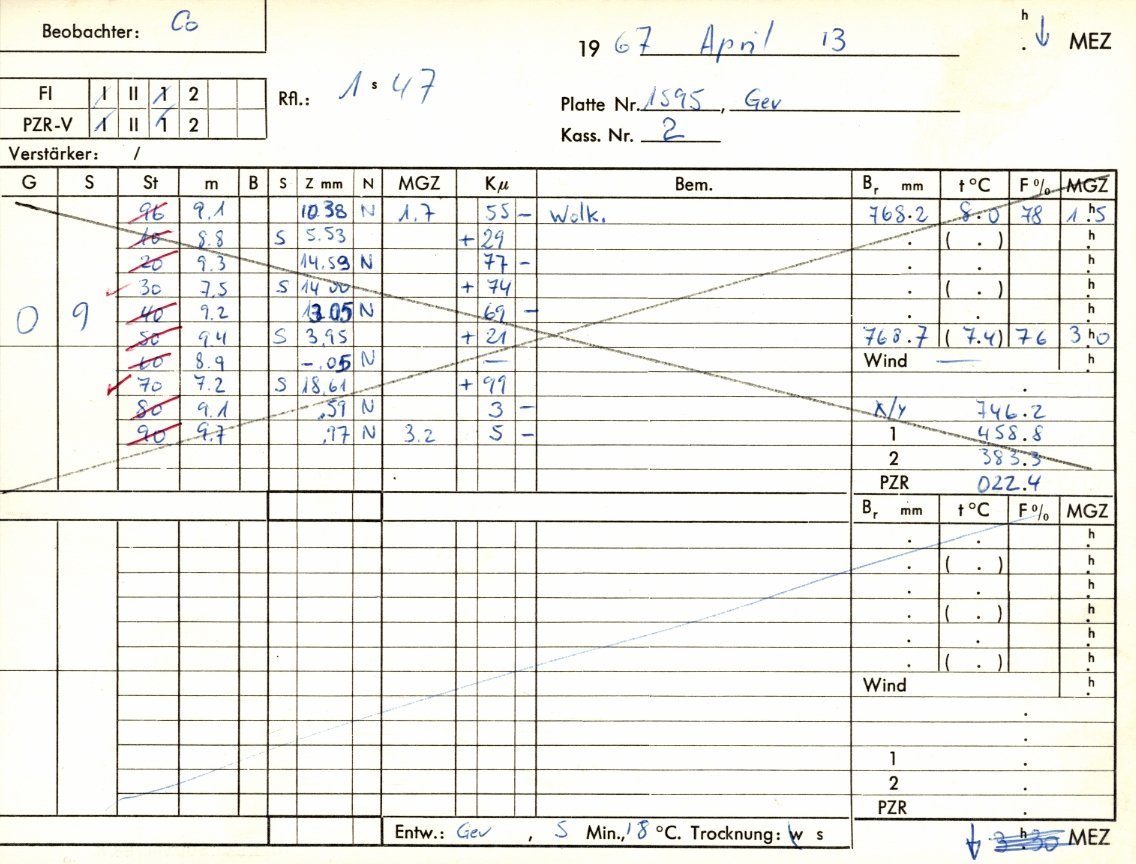 Beobachter: Co
19 67 April 13
h ↓ . MEZ
FI I II 1 2
Rfl.: 1 s 47
Platte Nr. 1595, Gev
PZR-V I II 1 2
Kass. Nr. 2
Verstärker: /
G S St m B S Z mm N MGZ Kμ Bem. Br mm t °C F % MGZ
96 9.1 10.38 N 1.7 55 – Wolk. 768.2 8.0 78 1.h5
10 8.8 S 5.53 + 29 . ( . ) .h
20 9.3 14.59 N 77 – . . .h
30 7.5 S 14.00 + 74 . ( . ) .h
0 9 40 9.2 13.05 N 69 – . . .h
50 9.4 S 3.95 + 21 768.7 ( 7.4) 76 3.h0
60 8.9 -.05 N — Wind — .h
70 7.2 S 18.61 + 99 .
80 9.1 .59 N 3 – X/Y 746.2
90 9.7 .97 N 3.2 5 – 1 458.8
2 383.3
PZR 022.4
Br mm t °C F % MGZ
. . .h
. ( . ) .h
. . .h
. ( . ) .h
. . .h
. ( . ) .h
Wind .h
.
.
1 .
2 .
PZR .
Entw.: Gev , 5 Min., 18 °C. Trocknung: w s
↓ 3.h30 MEZ